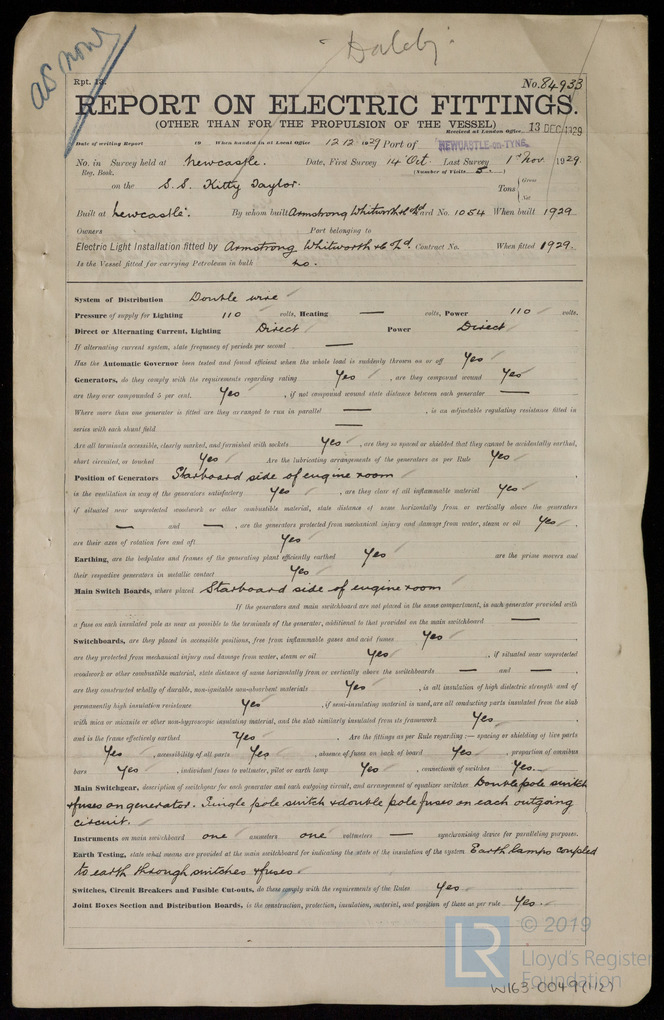 "Dalby"
as now
Rpt. 13.
No. 84933
REPORT ON ELECTRIC FITTINGS.
(OTHER THAN FOR THE PROPULSION OF THE VESSEL)
Received at London Office 13 DEC 1929
Date of writing Report 19 When handed in at Local Office 12.12.1929 Port of NEWCASTLE-on-TYNE.
No. in Survey held at Newcastle. Date, First Survey 14 Oct. Last Survey 1st Nov. 1929.
Reg. Book. (Number of Visits 5)
on the S.S. Kitty Taylor. Tons { Gross Net
Built at Newcastle. By whom built Armstrong Whitworth & Co Ld Yard No. 1054 When built 1929
Owners Port belonging to
Electric Light Installation fitted by Armstrong Whitworth & Co Ld. Contract No. When fitted 1929.
Is the Vessel fitted for carrying Petroleum in bulk No.
System of Distribution Double wire
Pressure of supply for Lighting 110 volts, Heating — volts, Power 110 volts.
Direct or Alternating Current, Lighting Direct Power Direct
If alternating current system, state frequency of periods per second —
Has the Automatic Governor been tested and found efficient when the whole load is suddenly thrown on or off Yes
Generators, do they comply with the requirements regarding rating Yes, are they compound wound Yes
are they over compounded 5 per cent. Yes, if not compound wound state distance between each generator —
Where more than one generator is fitted are they arranged to run in parallel —, is an adjustable regulating resistance fitted in
series with each shunt field —
Are all terminals accessible, clearly marked, and furnished with sockets Yes, are they so spaced or shielded that they cannot be accidentally earthed,
short circuited, or touched Yes Are the lubricating arrangements of the generators as per Rule Yes
Position of Generators Starboard side of engine room
is the ventilation in way of the generators satisfactory Yes, are they clear of all inflammable material Yes
if situated near unprotected woodwork or other combustible material, state distance of same horizontally from or vertically above the generators
— and —, are the generators protected from mechanical injury and damage from water, steam or oil Yes,
are their axes of rotation fore and aft Yes
Earthing, are the bedplates and frames of the generating plant efficiently earthed Yes are the prime movers and
their respective generators in metallic contact Yes
Main Switch Boards, where placed Starboard side of engine room
If the generators and main switchboard are not placed in the same compartment, is each generator provided with
a fuse on each insulated pole as near as possible to the terminals of the generator, additional to that provided on the main switchboard —
Switchboards, are they placed in accessible positions, free from inflammable gases and acid fumes Yes,
are they protected from mechanical injury and damage from water, steam or oil Yes, if situated near unprotected
woodwork or other combustible material, state distance of same horizontally from or vertically above the switchboards — and —,
are they constructed wholly of durable, non-ignitable non-absorbent materials Yes, is all insulation of high dielectric strength and of
permanently high insulation resistance Yes, if semi-insulating material is used, are all conducting parts insulated from the slab
with mica or micanite or other non-hygroscopic insulating material, and the slab similarly insulated from its framework Yes,
and is the frame effectively earthed Yes. Are the fittings as per Rule regarding :— spacing or shielding of live parts
Yes, accessibility of all parts Yes, absence of fuses on back of board Yes, proportion of omnibus
bars Yes, individual fuses to voltmeter, pilot or earth lamp Yes, connections of switches Yes.
Main Switchgear, description of switchgear for each generator and each outgoing circuit, and arrangement of equalizer switches Double pole switch
& fuses on generator. Single pole switch & double pole fuses on each outgoing
circuit.
Instruments on main switchboard one ammeters one voltmeters — synchronising device for paralleling purposes.
Earth Testing, state what means are provided at the main switchboard for indicating the state of the insulation of the system Earth lamps coupled
to earth through switches & fuses.
Switches, Circuit Breakers and Fusible Cut-outs, do these comply with the requirements of the Rules Yes
Joint Boxes Section and Distribution Boards, is the construction, protection, insulation, material, and position of these as per rule Yes.
LR © 2019
Lloyd's Register
Foundation
W163-0049(1/2)